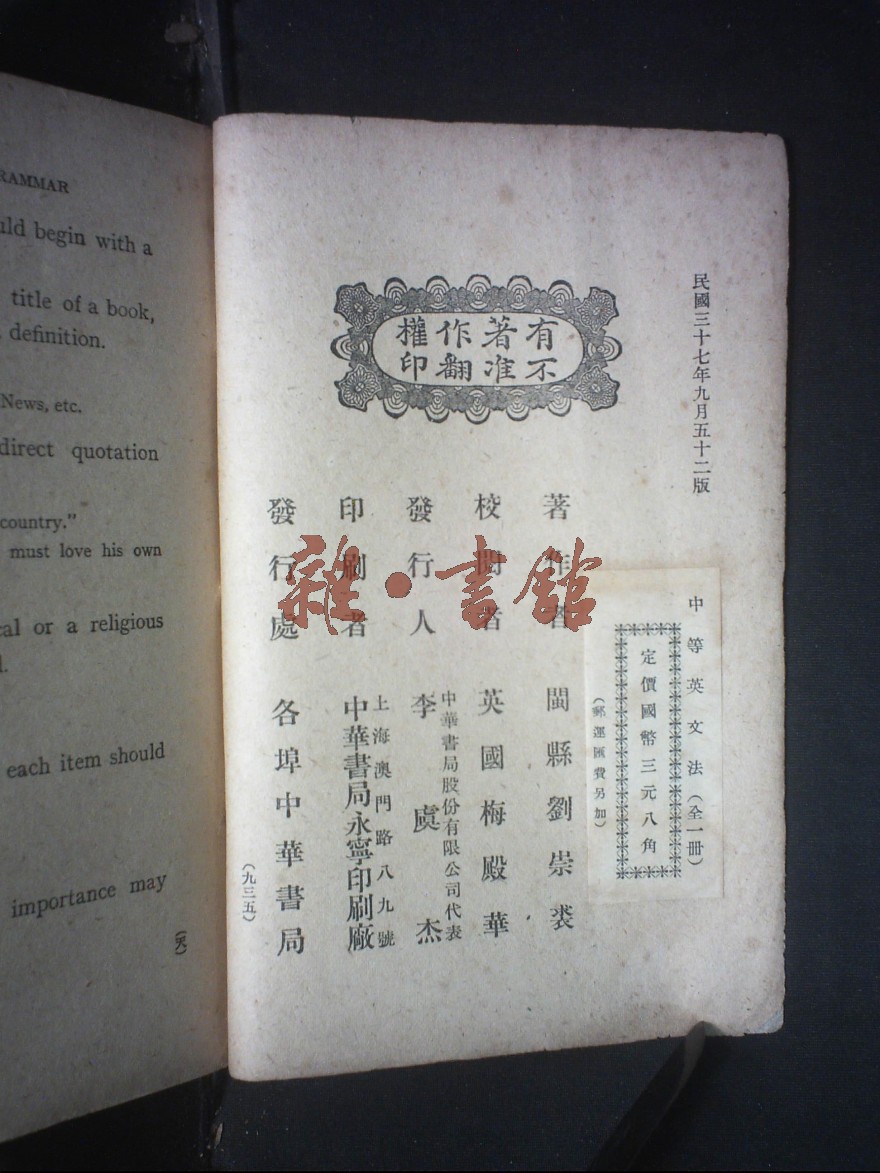 RAMMAR
uld begin with a
title of a book,
definition.
News, etc.
direct quotation
country.”
must love his own
cal or a religious
l.
each item should
importance may
民國三十七年九月五十二版
有著作權
不准翻印
中等英文法（全一冊）
定價國幣三元八角
（郵運匯費另加）
著作者 閩縣劉崇裘
校閱者 英國梅殿華
發行人 中華書局股份有限公司代表
李虞杰
印刷者 上海澳門路八九號
中華書局永寧印刷廠
發行處 各埠中華書局
（九三五）
雜·書館